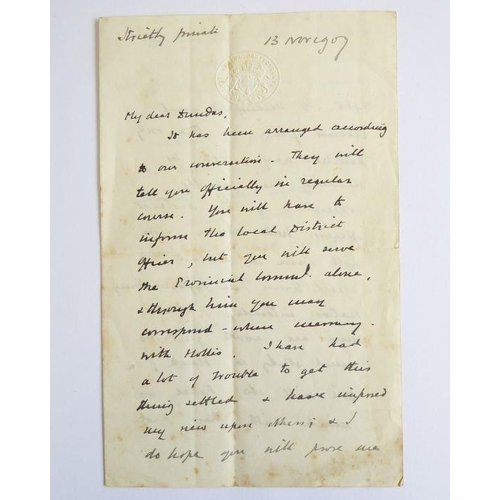 Strictly private
13 Nov 1907
My dear Dundas,
It has been arranged according
to our conversation. They will
tell you officially in regular
course. You will have to
inform the local District
Officer, but you will serve
the Provincial Commr. alone,
& through him you may
correspond - when necessary -
with Hollis. I have had
a lot of trouble to get this
thing settled & have imposed
my view upon others; & I
do hope you will prove me